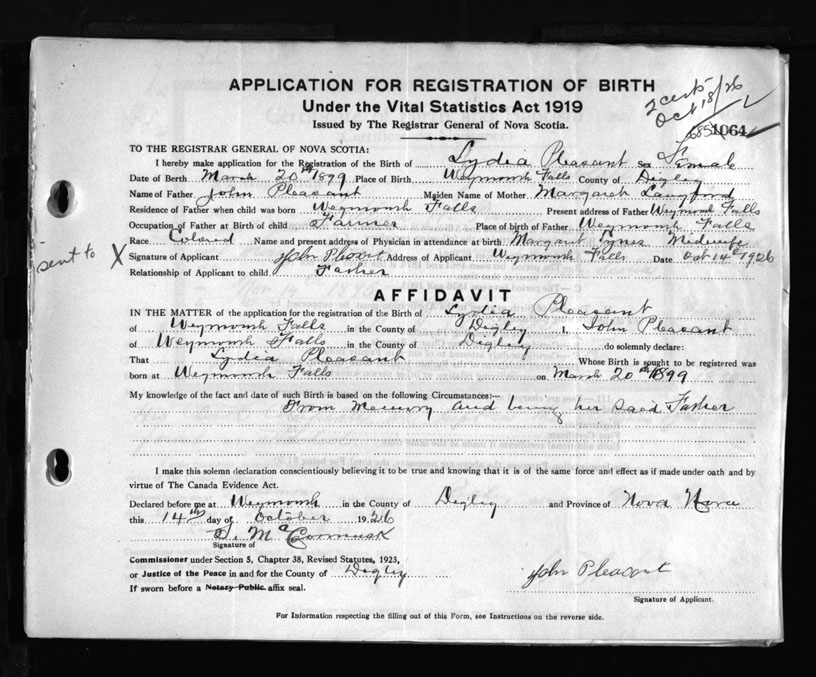 APPLICATION FOR REGISTRATION OF BIRTH
Under the Vital Statistics Act 1919
Issued by The Registrar General of Nova Scotia.
2 certs
Oct 18/26
1064
TO THE REGISTRAR GENERAL OF NOVA SCOTIA:
I hereby make application for the Registration of the Birth of Lydia Pleasant Sex Female
Date of Birth March 20th 1899 Place of Birth Weymouth Falls County of Digby
Name of Father John Pleasant Maiden Name of Mother Margaret Langford
Residence of Father when child was born Weymouth Falls Present address of Father Weymouth Falls
Occupation of Father at Birth of child Farmer Place of birth of Father Weymouth Falls
Race Colored Name and present address of Physician in attendance at birth Margaret Midwife
sent to X
Signature of Applicant John Plesant Address of Applicant Weymouth Falls Date Oct 14th 1926
Relationship of Applicant to child Father
AFFIDAVIT
IN THE MATTER of the application for the registration of the Birth of Lydia Pleasant
of Weymouth Falls in the County of Digby I, John Pleasant
of Weymouth Falls in the County of Digby do solemnly declare:
That Lydia Pleasant Whose Birth is sought to be registered was
born at Weymouth Falls on March 20th 1899
My knowledge of the fact and date of such Birth is based on the following Circumstances:—
From Memory and being her said Father
I make this solemn declaration conscientiously believing it to be true and knowing that it is of the same force and effect as if made under oath and by
virtue of The Canada Evidence Act.
Declared before me at Weymouth in the County of Digby and Province of Nova
this 14th day of October 1926
Signature of
Commissioner under Section 5, Chapter 38, Revised Statutes, 1923,
or Justice of the Peace in and for the County of Digby
If sworn before a Notary Public affix seal.
John Pleasant
Signature of Applicant.
For Information respecting the filling out of this Form, see Instructions on the reverse side.